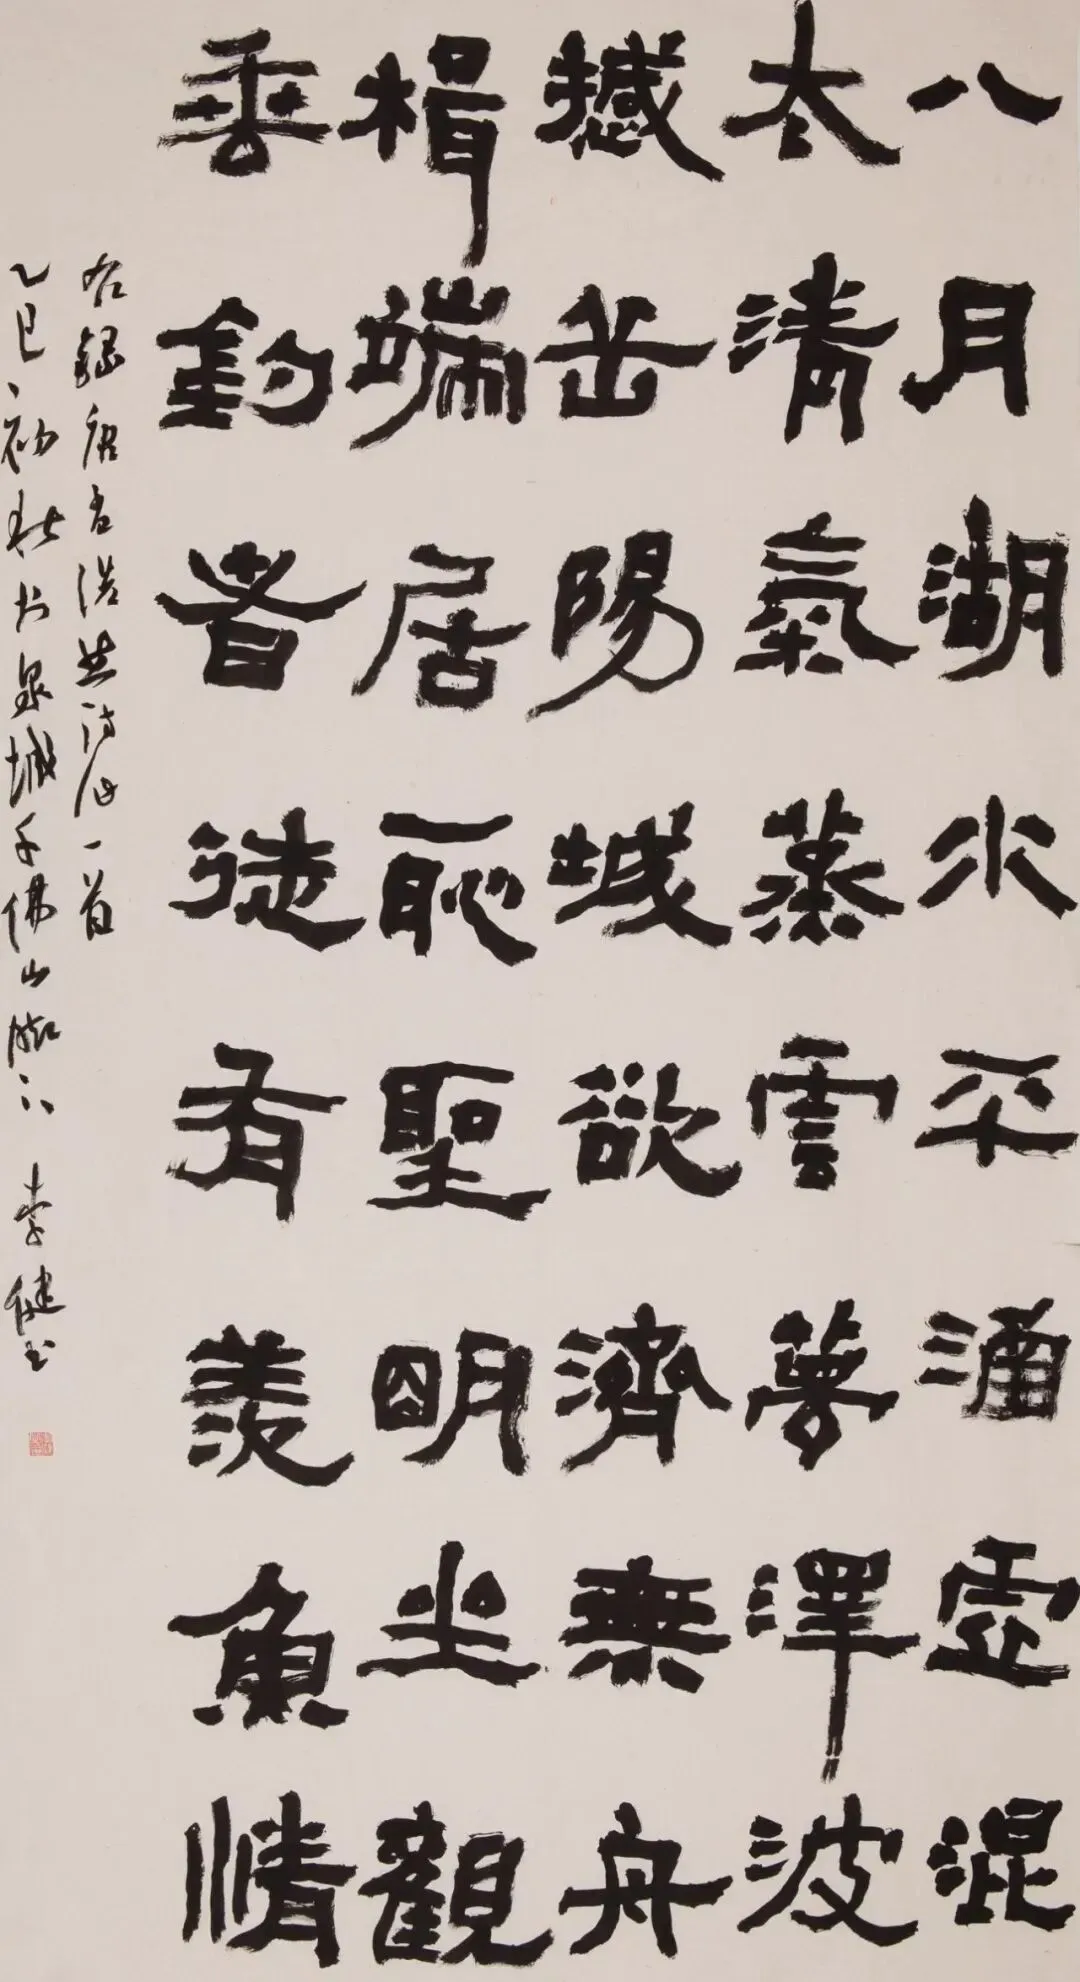 八月湖水平涵虛混
太清氣蒸雲夢澤波
撼岳陽城欲濟無舟
楫端居恥聖明坐觀
垂釣者徒有羨魚情
右錄唐孟浩然詩一首
乙巳初秋於泉城千佛山腳下 李健书